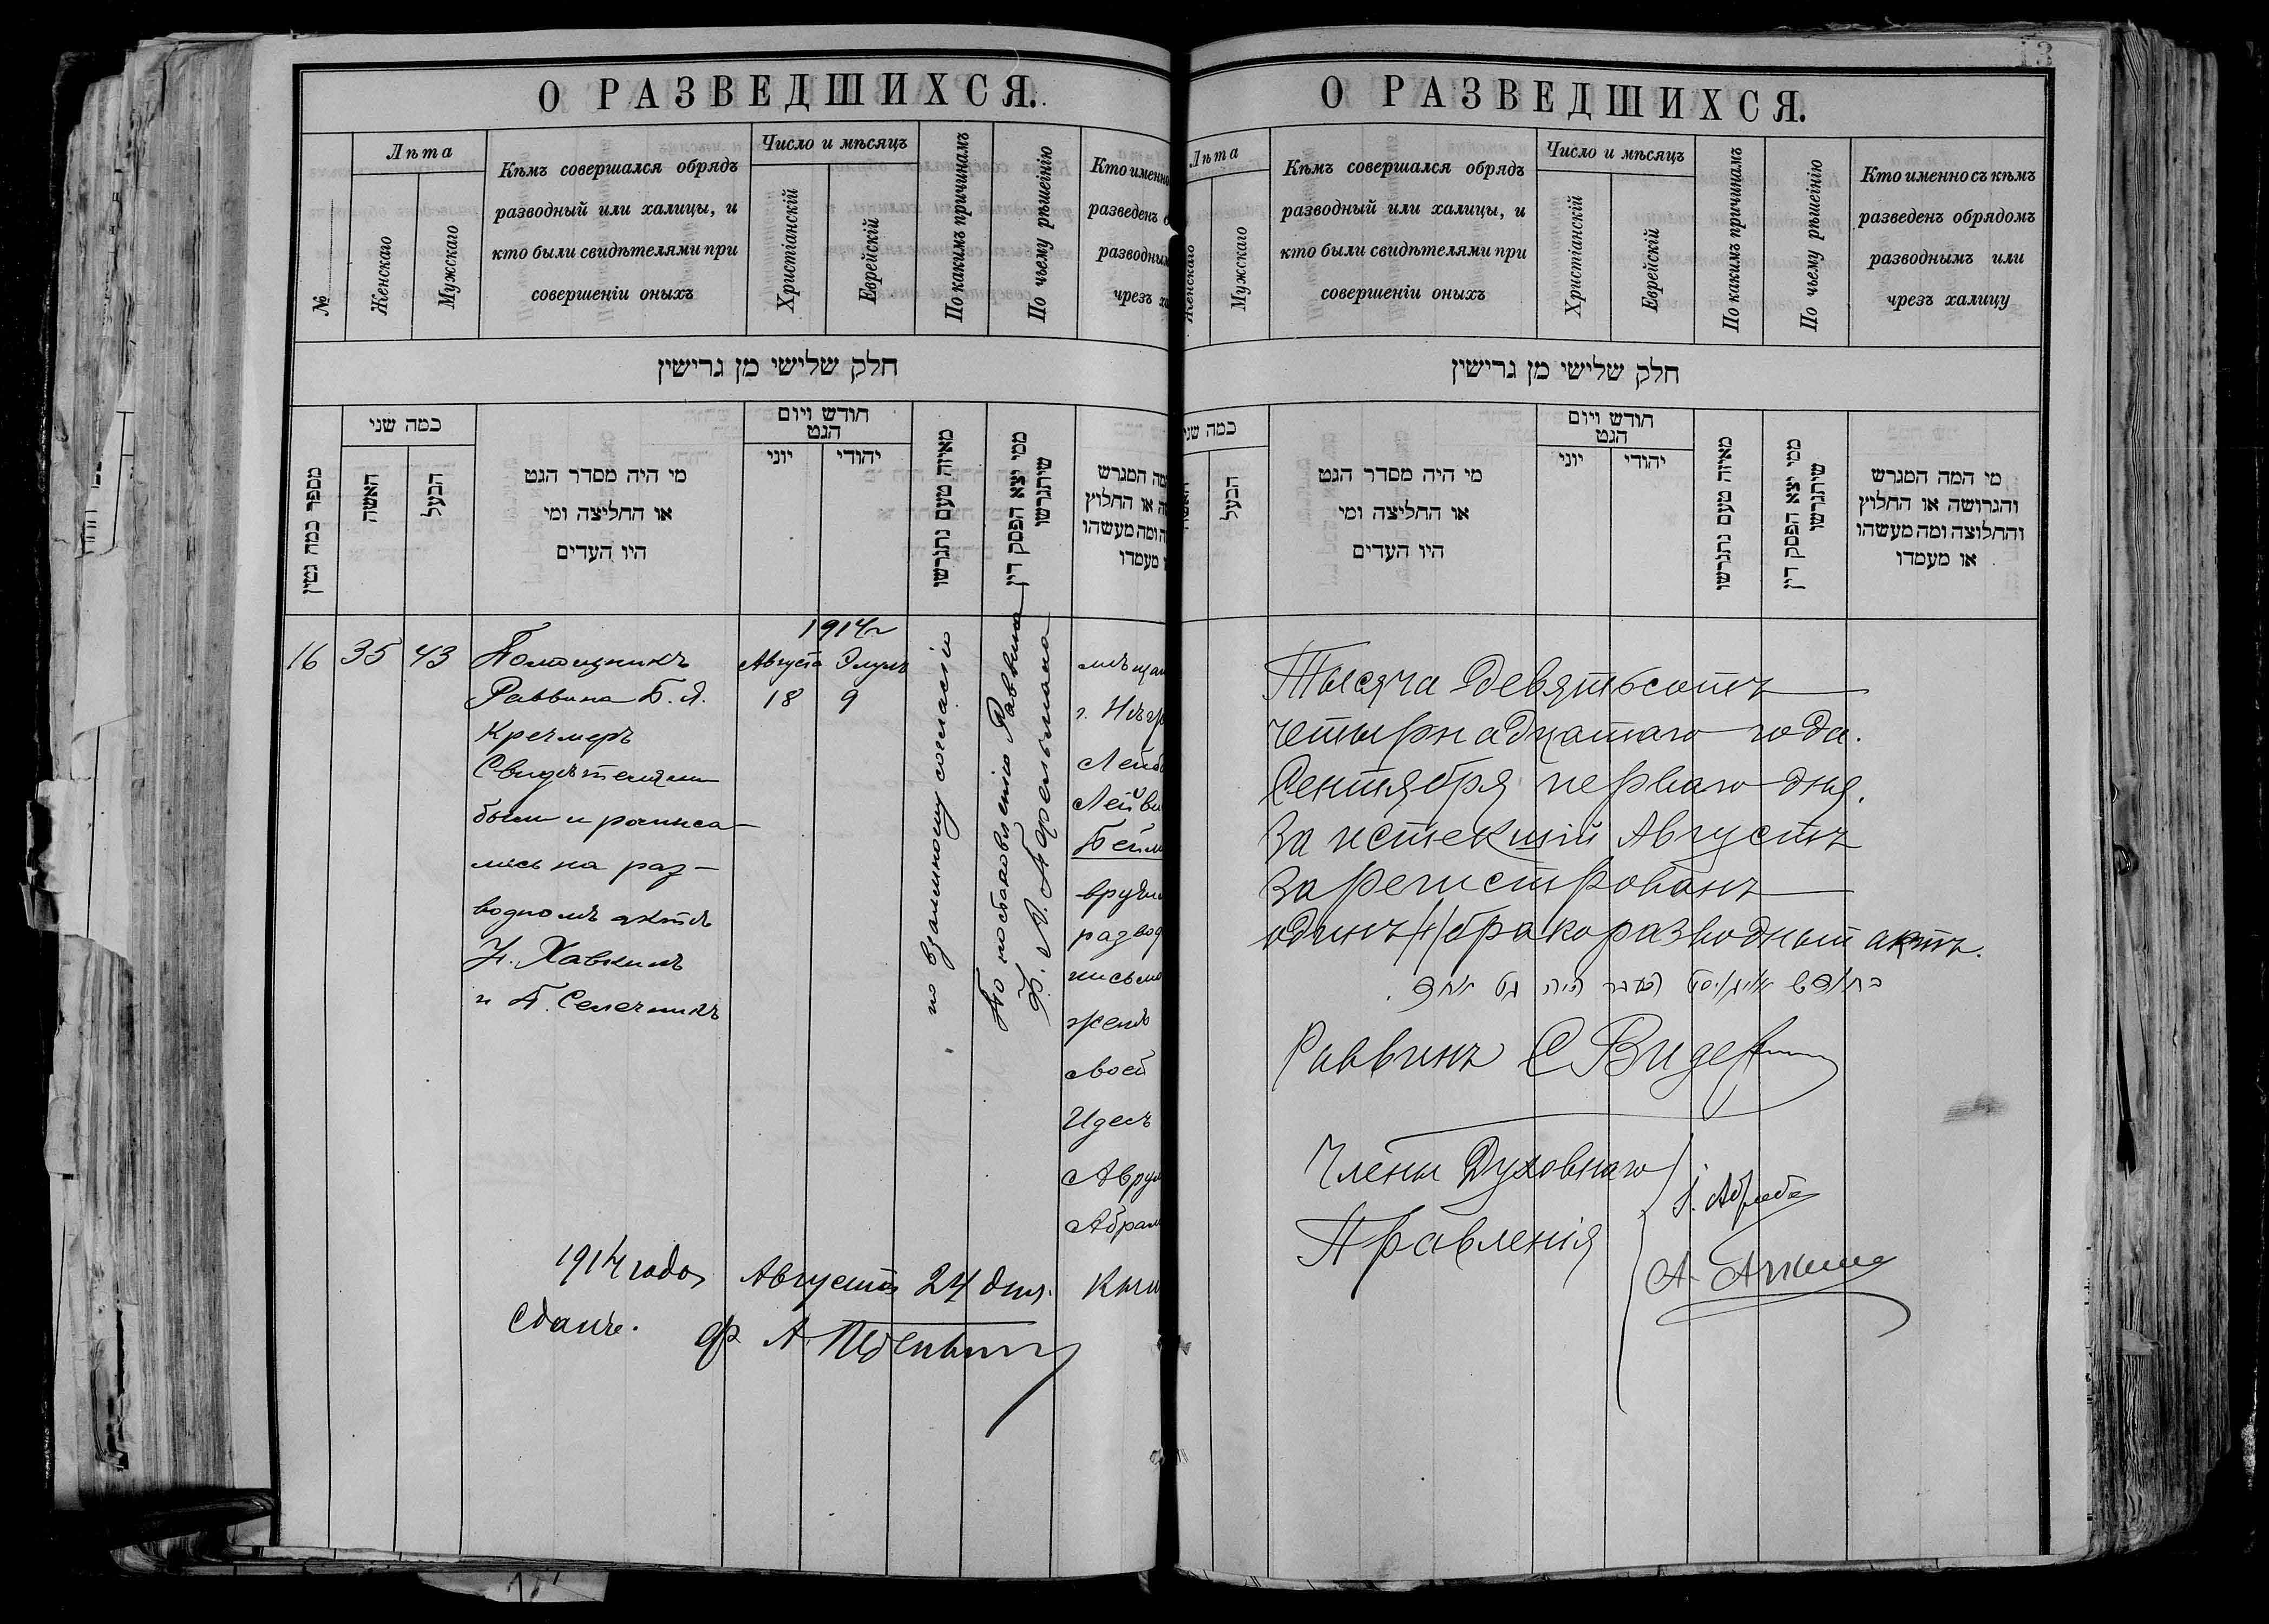 О РАЗВЕДШИХСЯ.
№
Лѣта
Женскаго
Мужскаго
Кѣмъ совершался обрядъ
разводный или халицы, и
кто были свидѣтелями при
совершеніи оныхъ
Число и мѣсяцъ
Христіанскій
Еврейскій
По какимъ причинамъ
По чьему рѣшеінію
Кто именно
разведенъ
разводны
чрезъ
חלק שלישי מן גרישין
מספר כמה גטין
כמה שני
האשה
הבעל
מי היה מסדר הגט
או החליצה ומי
היו העדים
חודש ויום
הגט
יוני
יהודי
מאיזה טעם נתגרשו
ממי יצא הפסק דין
שיתגרשו
המגרש
או החלוץ
ומה מעשהו
מעמדו
1914 г
16 35 43 Помощникъ Августа Элулъ
Раввина Б. Я. 18 9
Кречмеръ
Свидѣтелями
были и расписа-
лись на раз-
водномъ актѣ
Н. Хавкинъ
и П. Селечникъ
по взаимному согласію
По постановленію Раввина
г.
вручи
развод
письмо
женѣ
своей
1914 года Августа 24 дня.
Сданъ.
13
О РАЗВЕДШИХСЯ.
Лѣта
Женскаго
Мужскаго
Кѣмъ совершался обрядъ
разводный или халицы, и
кто были свидѣтелями при
совершеніи оныхъ
Число и мѣсяцъ
Христіанскій
Еврейскій
По какимъ причинамъ
По чьему рѣшеінію
Кто именно съ кѣмъ
разведенъ обрядомъ
разводнымъ или
чрезъ халицу
חלק שלישי מן גרישין
כמה שני
האשה
הבעל
מי היה מסדר הגט
או החליצה ומי
היו העדים
חודש ויום
הגט
יוני
יהודי
מאיזה טעם נתגרשו
ממי יצא הפסק דין
שיתגרשו
מי המה המגרש
והגרושה או החלוץ
והחלוצה ומה מעשהו
או מעמדו
Тысяча девятьсотъ
четырнадцатаго года.
Сентября перваго дня.
За истекшій Августъ
зарегистрованъ
одинъ /1/ бракоразводный актъ.
Раввинъ С
Члены Духовнаго
Правленія